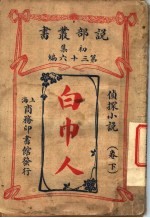 說部叢書
初集
第三十六編
偵探小說
（卷下）
白巾人
上海
商務印書館發行